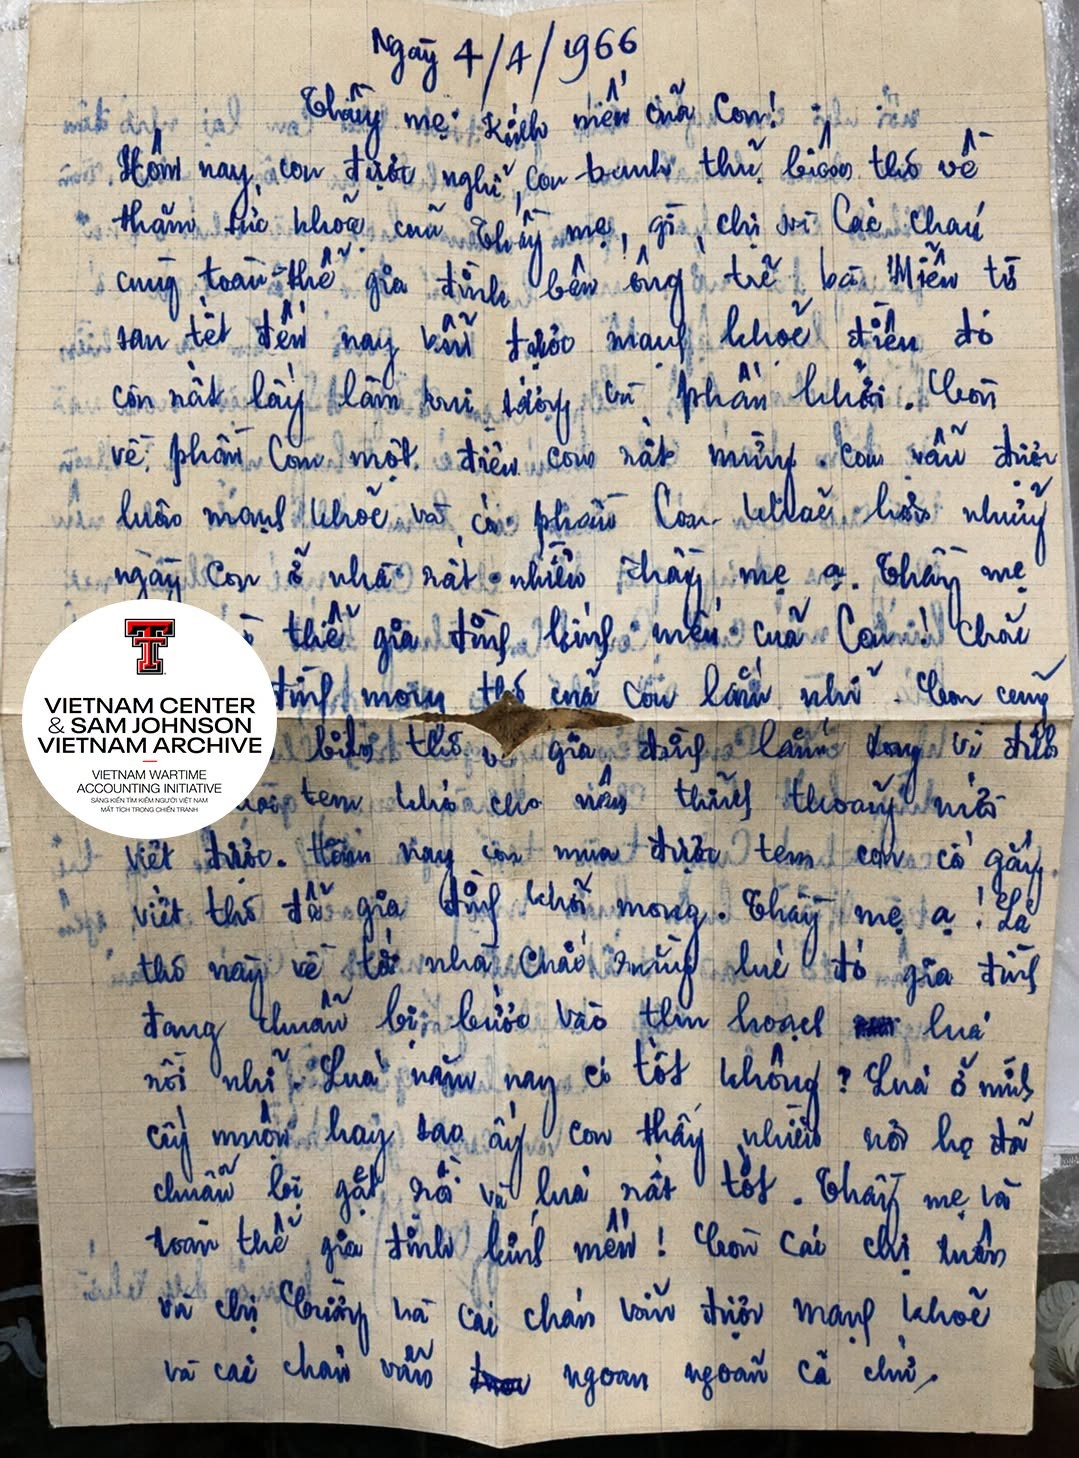 Ngày 4/4/1966
Thầy mẹ kính mến của Con!
Hôm nay, con được nghỉ, con tranh thủ biên thơ về
thăm sức khoẻ của Thầy mẹ, gì, chị và Các cháu
cùng toàn thể gia đình bên ông trẻ bà Miễn từ
sau tết đến nay vẫn được mạnh khoẻ điều đó
con rất lấy làm vui sướng và phấn khởi. Còn
về phần Con một điều con rất mừng. con vẫn được
luôn mạnh khoẻ và có phần Con khoẻ hơn những
ngày con ở nhà rất nhiều thầy mẹ ạ. Thầy mẹ
thể gia đình kính mến của Con! Chắc
đình mong thơ của con lắm nhỉ. Con cũng
biên thơ gia đình lắm song vì điều
tem khó cho nên thỉnh thoảng mới
viết được. Hôm nay con mua được tem con cố gắng
viết thơ để gia đình khỏi mong. Thầy mẹ ạ! Lá
thơ này về tới nhà chắc rằng lúc đó gia đình
đang chuẩn bị bước vào thu hoạch lúa
rồi nhỉ. Lúa năm nay có tốt không? Lúa ở mình
cấy muộn hay sao ấy con thấy nhiều nơi họ đã
chuẩn bị gặt rồi và lúa rất tốt. Thầy mẹ và
toàn thể gia đình kính mến! Còn các chị
và chị và các cháu vẫn được mạnh khoẻ
và các cháu vẫn ngoan ngoãn cả chứ.
VIETNAM CENTER
& SAM JOHNSON
VIETNAM ARCHIVE
VIETNAM WARTIME
ACCOUNTING INITIATIVE
SÁNG KIẾN TÌM KIẾM NGƯỜI VIỆT NAM
MẤT TÍCH TRONG CHIẾN TRANH